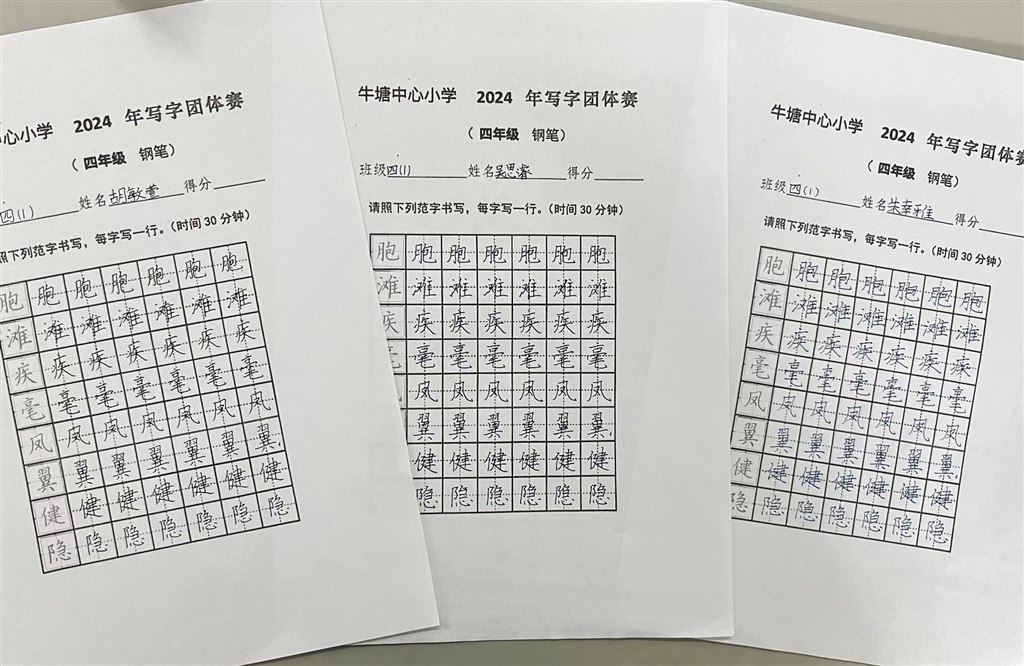 心小学 2024 年写字团体赛
（四年级 钢笔）
四(1) 姓名胡敏萱 得分
照下列范字书写，每字写一行。（时间 30 分钟）
胞胞胞胞胞胞胞
滩滩滩滩滩滩滩
疾疾疾疾疾疾疾
毫毫毫毫毫毫毫
凤凤凤凤凤凤凤
翼翼翼翼翼翼翼
健健健健健健健
隐隐隐隐隐隐隐
牛塘中心小学 2024 年写字团体赛
（四年级 钢笔）
班级四(1) 姓名吴思睿 得分
请照下列范字书写，每字写一行。（时间 30 分钟）
胞胞胞胞胞胞胞
滩滩滩滩滩滩滩
疾疾疾疾疾疾疾
毫毫毫毫毫毫毫
凤凤凤凤凤凤
翼翼翼翼翼翼
健健健健健健
隐隐隐隐隐隐
牛塘中心小学 2024 年写字团体赛
（四年级 钢笔）
班级四(1) 姓名朱幸雅 得分
请照下列范字书写，每字写一行。（时间 30 分钟）
胞胞胞胞胞胞胞
滩滩滩滩滩滩滩
疾疾疾疾疾疾疾
毫毫毫毫毫毫毫
凤凤凤凤凤凤凤
翼翼翼翼翼翼翼
健健健健健健健
隐隐隐隐隐隐隐